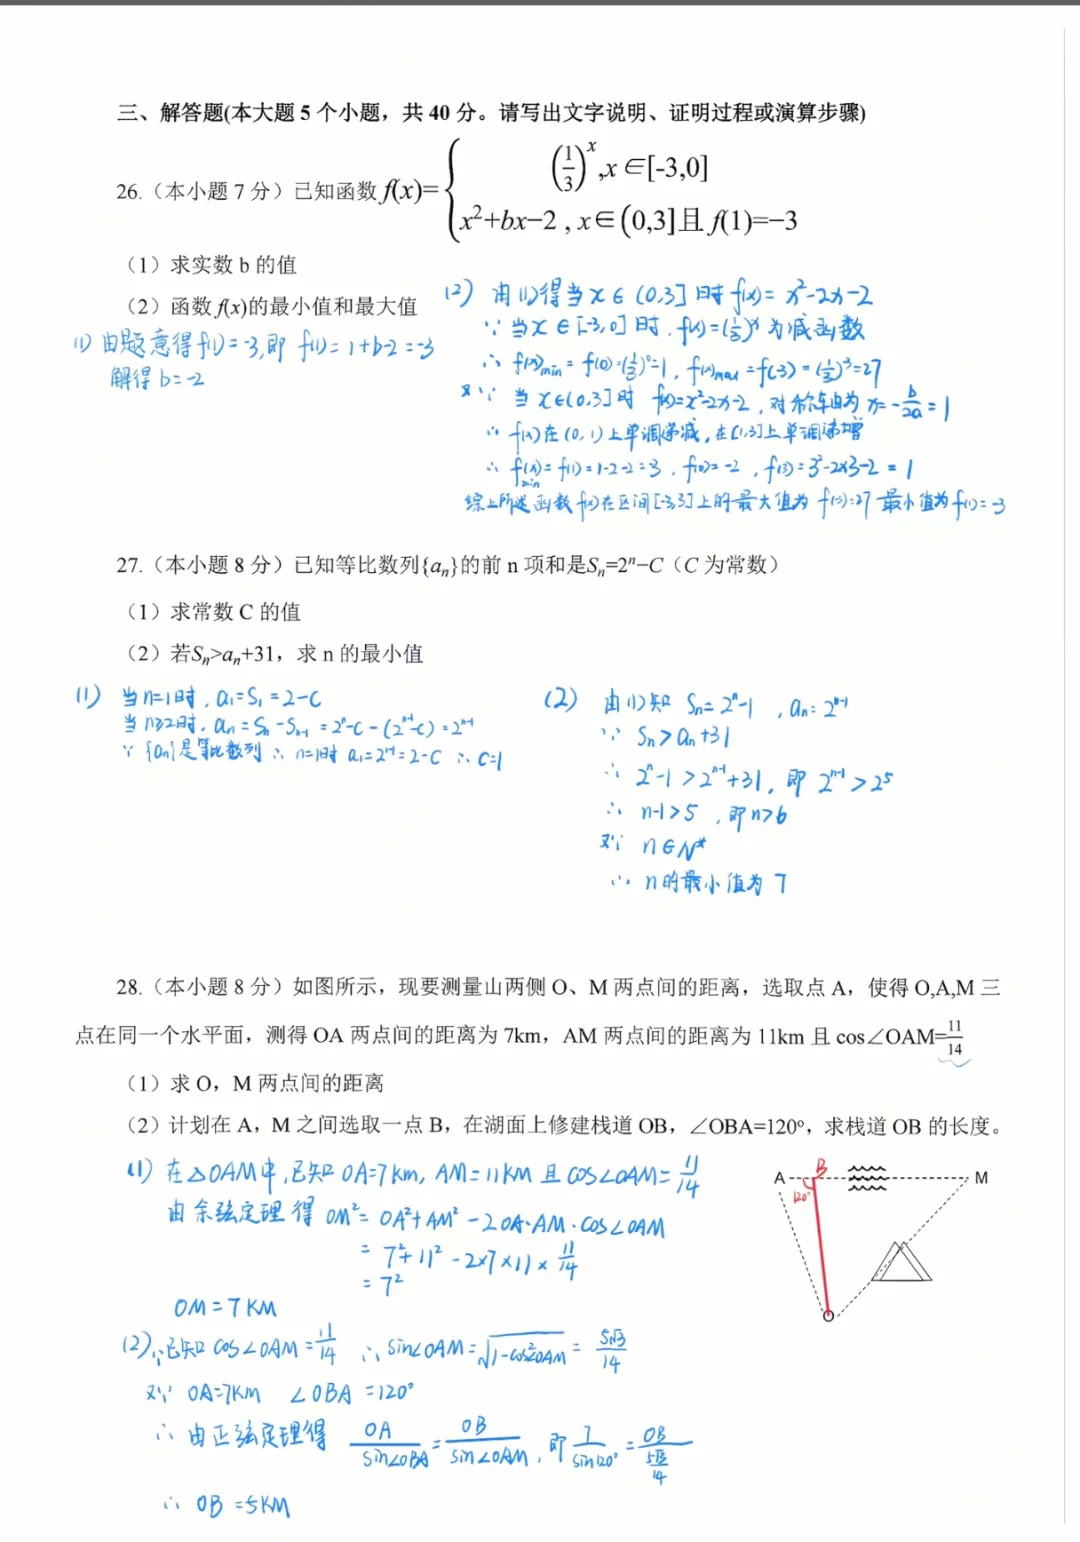 三、解答题(本大题 5 个小题，共 40 分。请写出文字说明、证明过程或演算步骤)
26.（本小题 7 分）已知函数 f(x)={ (1/3)^x, x∈[-3,0]
x²+bx−2 , x∈(0,3]且 f(1)=−3
（1）求实数 b 的值
（2）函数 f(x)的最小值和最大值
(1) 由题意得f(1)=-3,即 f(1)=1+b-2=-3
解得 b=-2
(2) 由(1)得当 x∈(0,3]时 f(x)=x²-2x-2
∵当x∈[-3,0]时,f(x)=(1/3)^x 为减函数
∴ f(x)min=f(0)=(1/3)^0=1, f(x)max=f(-3)=(1/3)^-3=27
又∵ 当 x∈(0,3]时 f(x)=x²-2x-2,对称轴为 x=-b/2a=1
∴ f(x)在(0,1)上单调递减,在[1,3]上单调递增
∴ f(x)min=f(1)=1-2-2=-3, f(0)=-2, f(3)=3²-2×3-2=1
综上所述函数f(x)在区间[-3,3]上的最大值为 f(-3)=27 最小值为f(1)=-3
27.（本小题 8 分）已知等比数列{aₙ}的前 n 项和是Sₙ=2ⁿ−C（C 为常数）
（1）求常数 C 的值
（2）若Sₙ>aₙ+31，求 n 的最小值
(1) 当n=1时, a₁=S₁=2-C
当 n≥2时, aₙ=Sₙ-Sₙ₋₁=2ⁿ-C-(2ⁿ⁻¹-C)=2ⁿ⁻¹
∵{aₙ}是等比数列 ∴ n=1时 a₁=2¹⁻¹=2-C ∴ C=1
(2) 由(1)知 Sₙ=2ⁿ-1 , aₙ=2ⁿ⁻¹
∵ Sₙ>aₙ+31
∴ 2ⁿ-1>2ⁿ⁻¹+31, 即 2ⁿ⁻¹>2⁵
∴ n-1>5 , 即n>6
又∵ n∈N*
∴ n的最小值为 7
28.（本小题 8 分）如图所示，现要测量山两侧 O、M 两点间的距离，选取点 A，使得 O,A,M 三
点在同一个水平面，测得 OA 两点间的距离为 7km，AM 两点间的距离为 11km 且 cos∠OAM=11/14
（1）求 O，M 两点间的距离
（2）计划在 A，M 之间选取一点 B，在湖面上修建栈道 OB，∠OBA=120°，求栈道 OB 的长度。
(1) 在△OAM中,已知 OA=7km, AM=11KM 且 cos∠OAM=11/14
由余弦定理得 OM²=OA²+AM²-2OA·AM·cos∠OAM
=7²+11²-2×7×11×11/14
=7²
OM=7KM
(2)∵已知 cos∠OAM=11/14 ∴ sin∠OAM=√1-cos²∠OAM=5√3/14
又∵ OA=7KM ∠OBA=120°
∴ 由正弦定理得 OA/sin∠OBA=OB/sin∠OAM, 即 7/sin120°=OB/(5√3/14)
∴ OB=5KM
A B M
120°
O